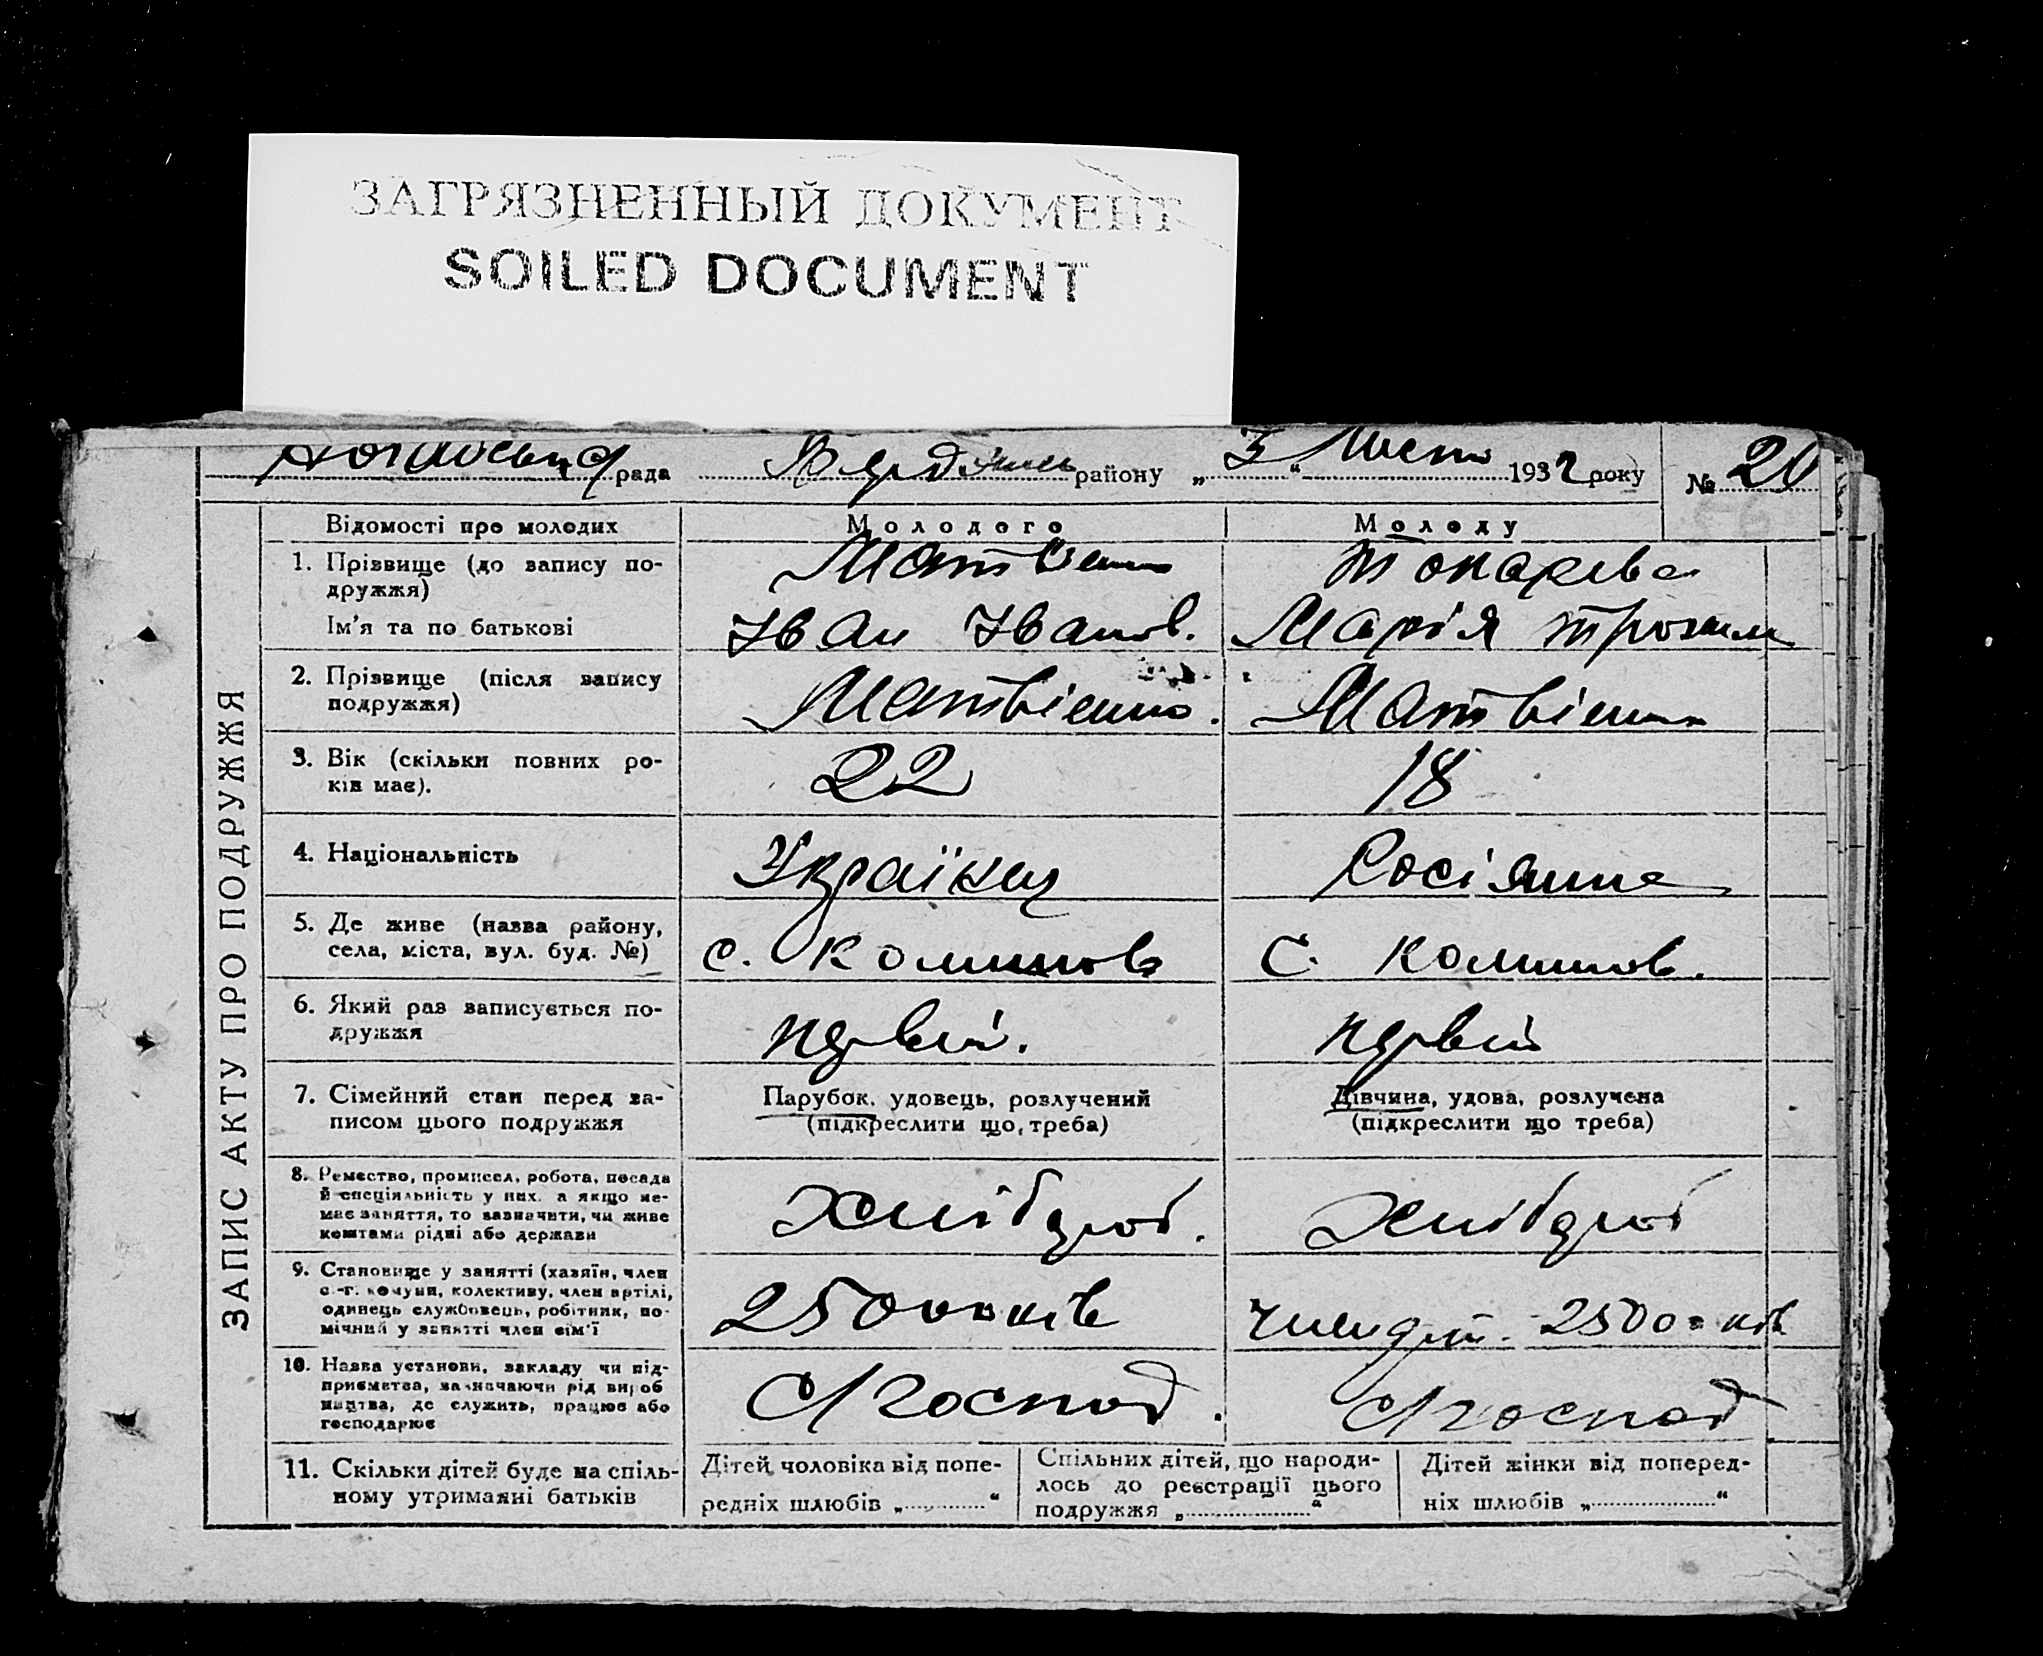 ЗАГРЯЗНЕННЫЙ ДОКУМЕНТ
SOILED DOCUMENT
рада району „3“ 1932 року № 20
ЗАПИС АКТУ ПРО ПОДРУЖЖЯ
Відомості про молодих
Молодого
Молоду
1. Прізвище (до запису по-
дружжя)
Ім'я та по батькові
Токарева
Іван Іванов.
Марія
2. Прізвище (після запису
подружжя)
Матвіенко.
Матвіенко
3. Вік (скільки повних ро-
ків має).
22
18
4. Національність
Українец
Росіянка
5. Де живе (назва району,
села, міста, вул. буд. №)
с.
с.
6. Який раз записується по-
дружжя
первий.
первий
7. Сімейний стан перед за-
писом цього подружжя
Парубок, удовець, розлучений
(підкреслити що треба)
Дівчина, удова, розлучена
(підкреслити що треба)
8. Ремество, промисел, робота, посада
й спеціяльність у них, а якщо не-
має заняття, то зазначити, чи живе
коштами рідні або держави
Хлібороб.
Хлібороб
9. Становище у занятті (хазяїн, член
с.-г. комуни, колективу, член артілі,
одинець службовець, робітник, по-
мічний у занятті член сім'ї
член
10. Назва установи, закладу чи під-
приємства, зазначаючи рід вироб
ництва, де служить, працює або
господарює
с/господ.
с/господ
11. Скільки дітей буде на спіль-
ному утриманні батьків
Дітей чоловіка від попе-
редніх шлюбів „............“
Спільних дітей, що народи-
лось до реєстрації цього
подружжя „..................“
Дітей жінки від поперед-
ніх шлюбів „..................“